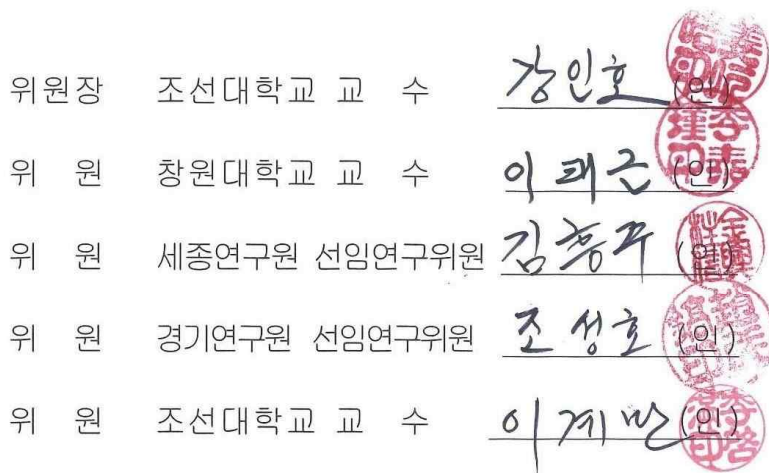 위원장 조선대학교 교 수 강인호 (인)
위 원 창원대학교 교 수 이태근 (인)
위 원 세종연구원 선임연구위원 김흥주 (인)
위 원 경기연구원 선임연구위원 조성호 (인)
위 원 조선대학교 교 수 이계만 (인)